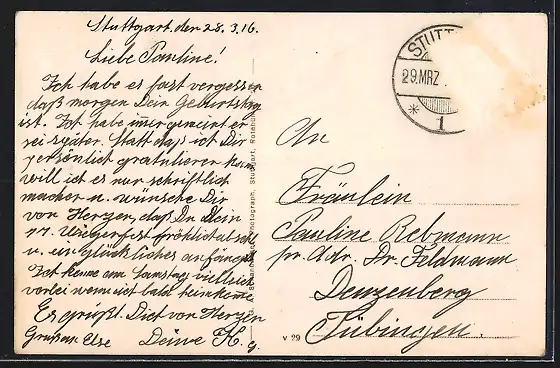 Stuttgart, den 28.3.16.
Liebe Pauline!
Ich habe es fast vergessen
daß morgen Dein Geburtstag
ist. Ich habe immer gemeint er
sei später. Statt daß ich Dir
persönlich gratulieren kann
will ich es nur schriftlich
machen u. wünsche Dir
von Herzen, daß Du Dein
Wiegenfest fröhlich
u. ein glückliches
Ich komme am Samstag vielleicht
vorbei wenn ich bald heimkomme
Es grüßt Dich von Herzen
Gruß an Else Deine H.
Photograph, Stuttgart,
v 29
STUTT
29.MRZ
* 1
An
Fräulein
Pauline Rebmann
pr. Adr. Dr. Feldmann
Denzenberg
Tübingen.